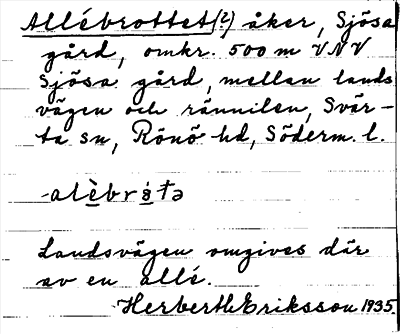 Allébrottet(?) åker, Sjösa
gård, omkr. 500 m VNV
Sjösa gård, mellan lands
vägen och rännilen, Svär-
ta sn, Rönö hd, Söderm. l.
-alèbrå̀tə
Landsvägen omgives där
av en allé.
Herberth Eriksson 1935.